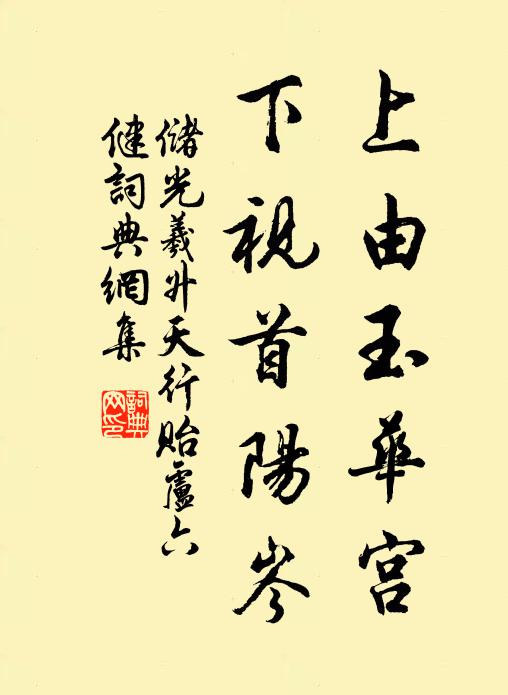 上由玉華宮
下視首陽岑
儲光羲升天行貽盧六
健詞典網集
詞典网印